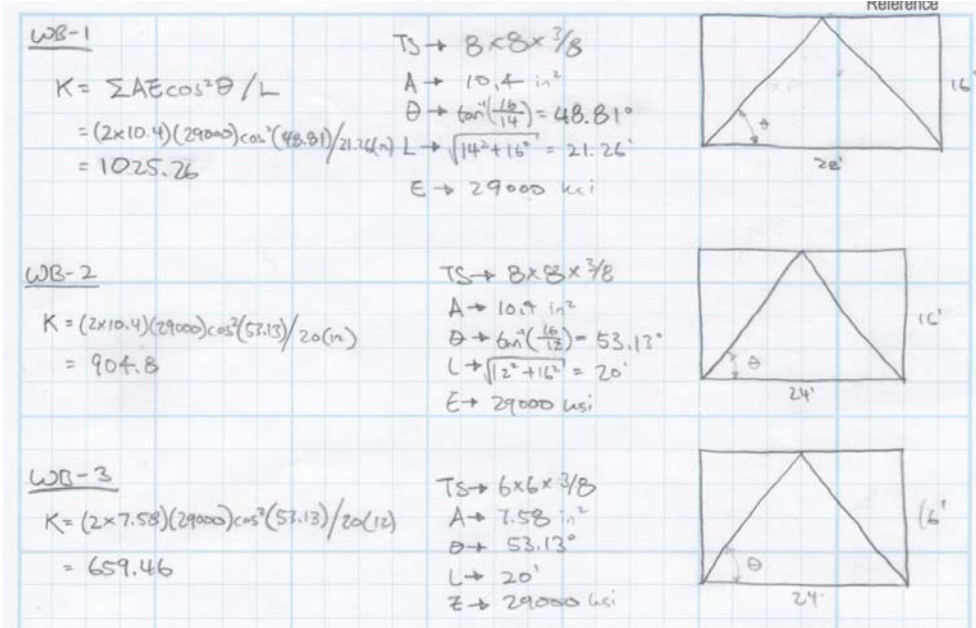 Reference
WB-1
K = ΣAEcos²θ / L
= (2×10.4)(29000)cos²(48.81)/21.26(12)
= 1025.26
TS → 8×8×3/8
A → 10.4 in²
θ → tan⁻¹(16/14) = 48.81°
L → √14²+16² = 21.26'
E → 29000 ksi
θ
16'
28'
WB-2
K = (2×10.4)(29000)cos²(53.13)/20(12)
= 904.8
TS → 8×8×3/8
A → 10.4 in²
θ → tan⁻¹(16/12) = 53.13°
L → √12²+16² = 20'
E → 29000 ksi
θ
16'
24'
WB-3
K = (2×7.58)(29000)cos²(53.13)/20(12)
= 659.46
TS → 6×6×3/8
A → 7.58 in²
θ → 53.13°
L → 20'
E → 29000 ksi
θ
16'
24'